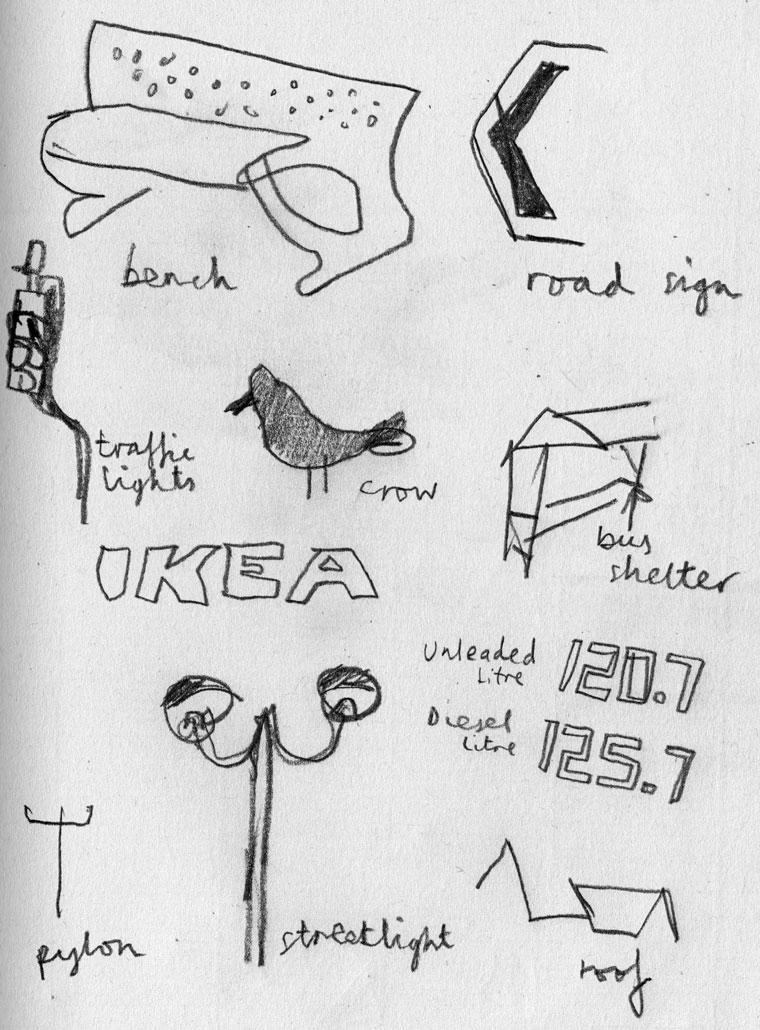 bench
road sign
traffic
lights
crow
bus
shelter
IKEA
Unleaded
Litre
120.7
Diesel
Litre
125.7
pylon
streetlight
roof